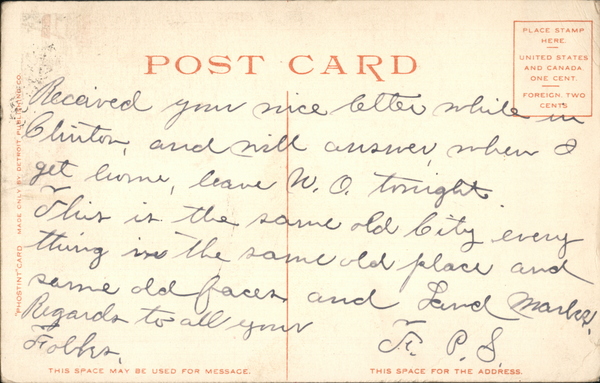 POST CARD
PLACE STAMP
HERE.
UNITED STATES
AND CANADA.
ONE CENT.
FOREIGN, TWO
CENTS
Received your nice letter while in
Clinton, and will answer, when I
get home, leave N. O. tonight.
This is the same old City every
thing in the same old place and
same old faces and Land Marks.
Regards to all your
Folks.
F. P. S.
"PHOSTINT" CARD MADE ONLY BY DETROIT PUBLISHING CO.
THIS SPACE MAY BE USED FOR MESSAGE.
THIS SPACE FOR THE ADDRESS.